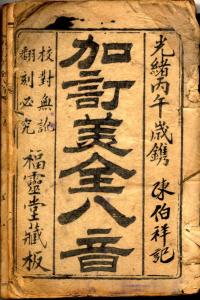 光緒丙午歲鐫 陳伯祥記
加訂美全八音
校對無訛
翻刻必究
福靈堂藏板